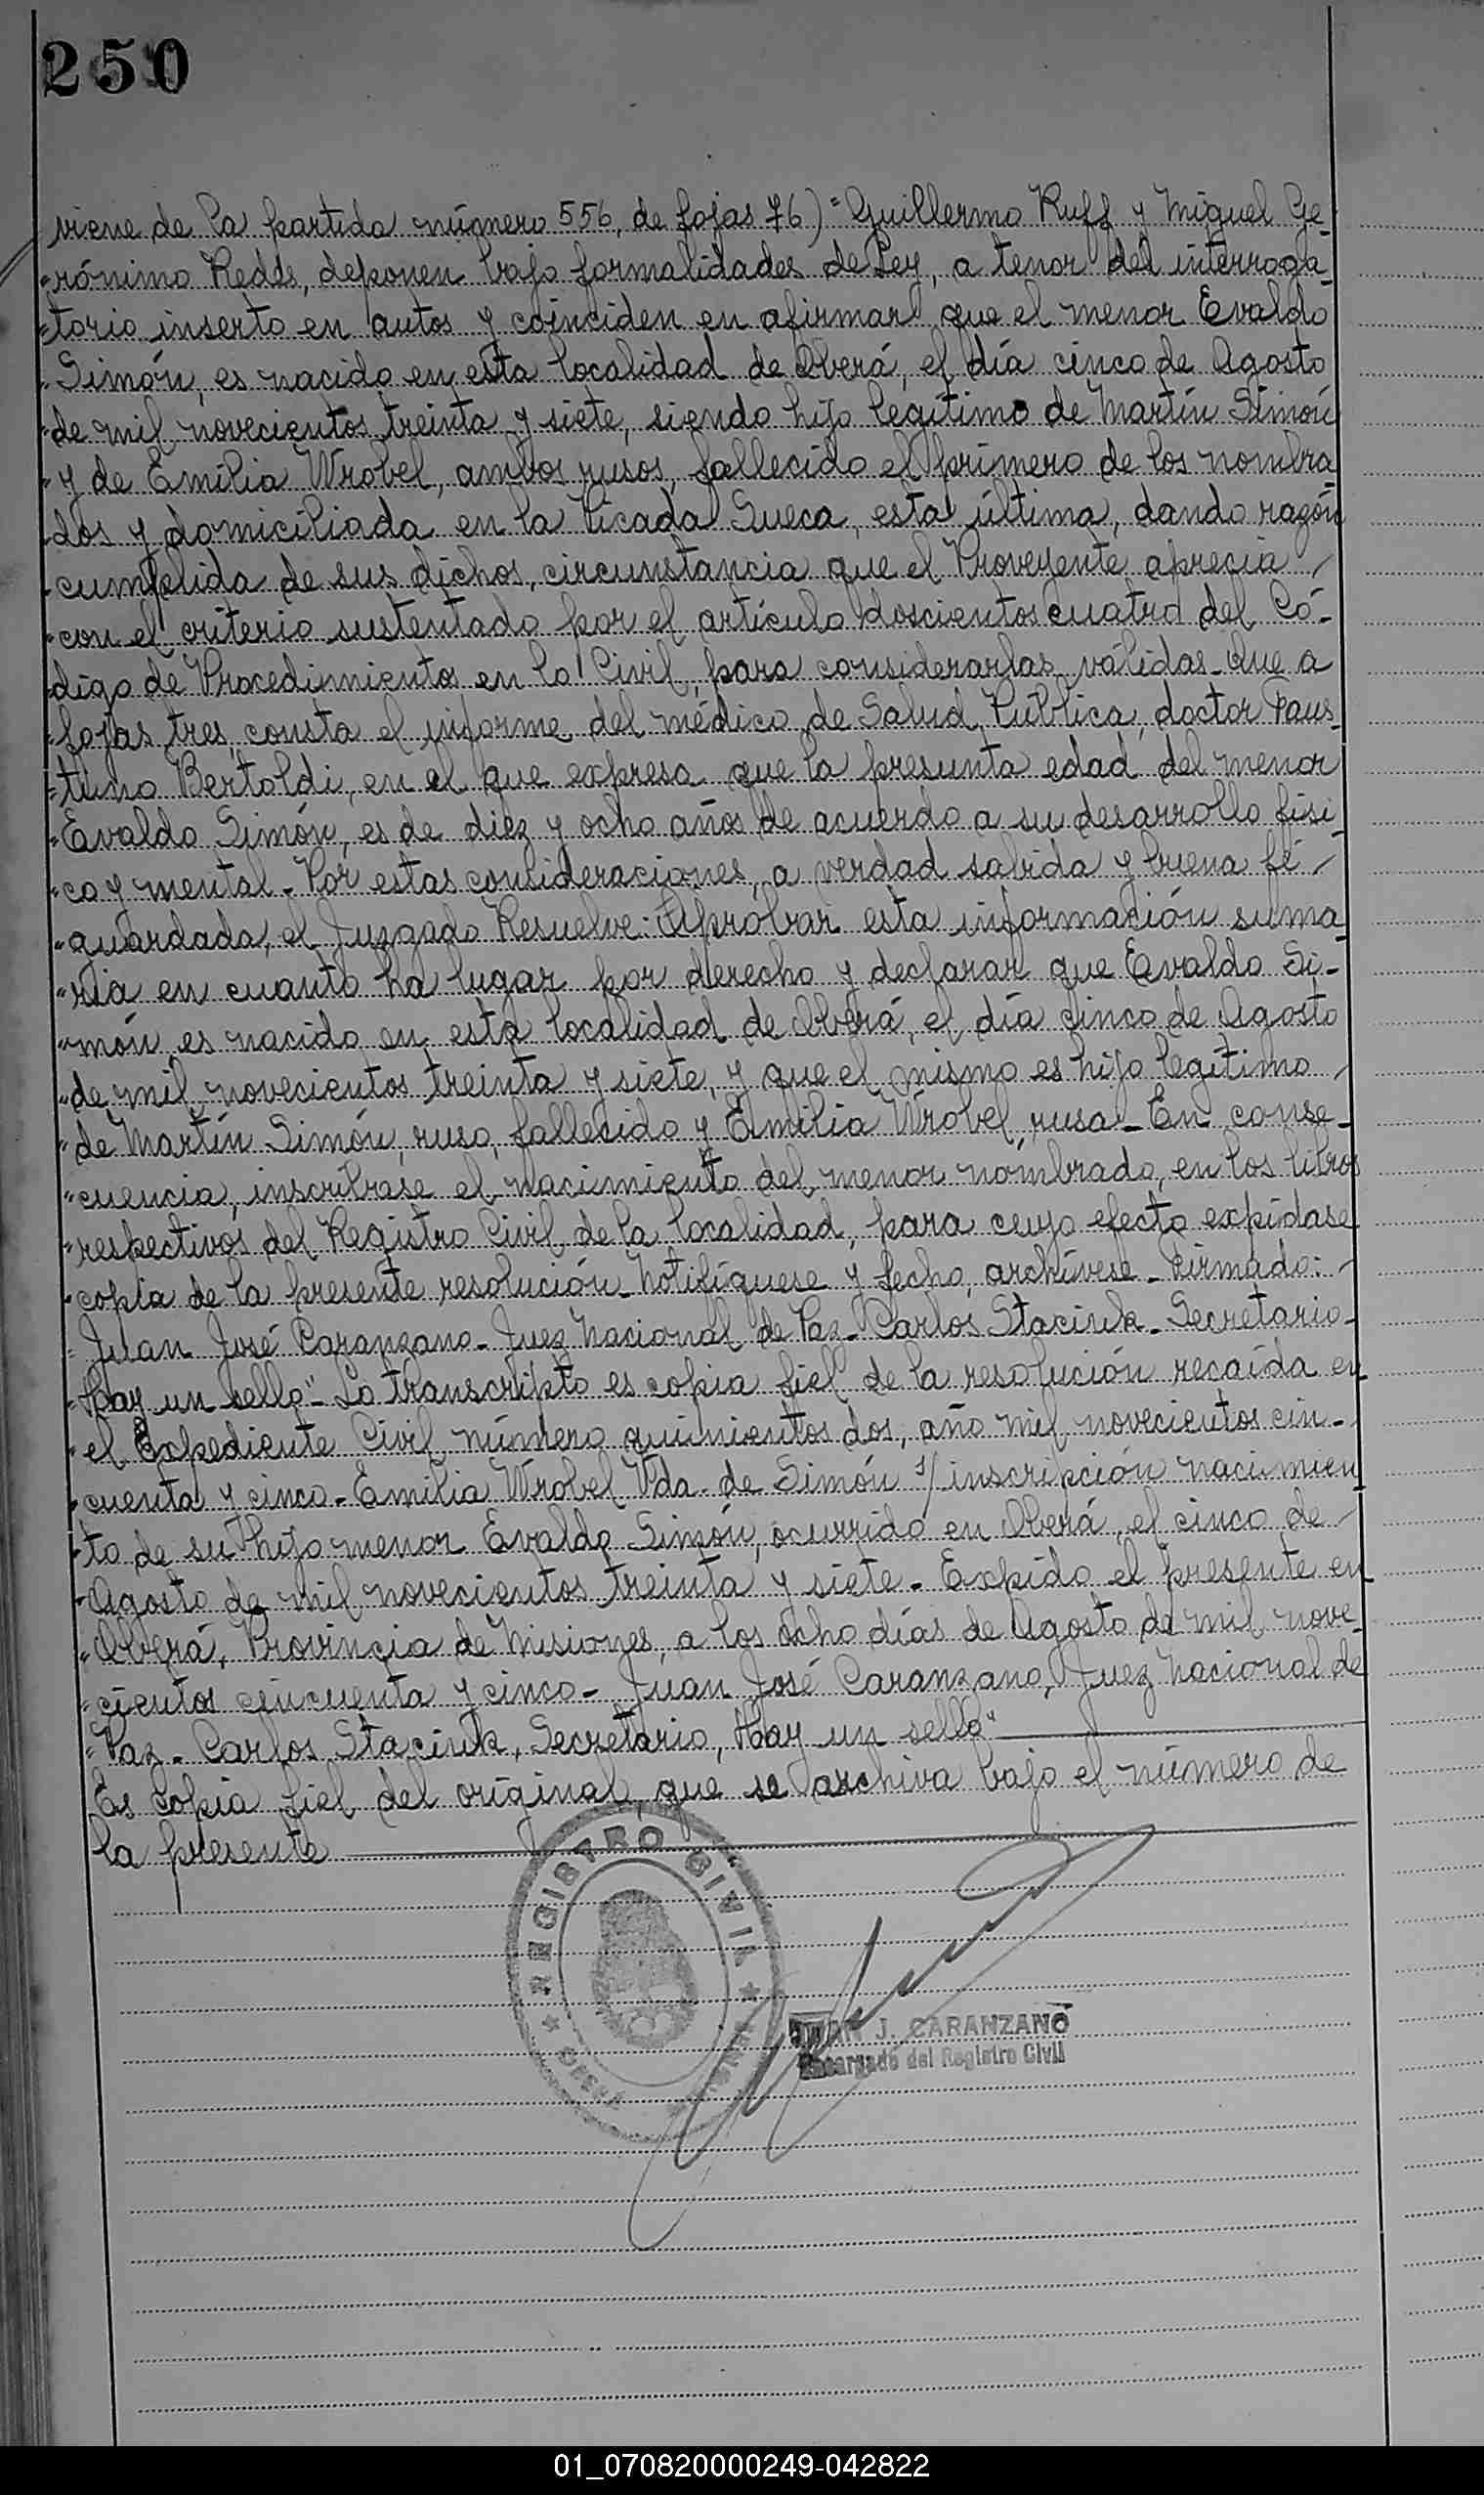 250
viene de la partida número 556, de fojas 76) "Guillermo Ruff y Miguel Ge-
"rónimo Redes, deponen bajo formalidades de Ley, a tenor del interroga-
"torio inserto en autos y coinciden en afirmar que el menor Evaldo
"Simón, es nacido en esta localidad de Oberá, el día cinco de Agosto
"de mil novecientos treinta y siete, siendo hijo legítimo de Martín Simón
"y de Emilia Wrobel, ambos rusos, fallecido el primero de los nombra
"dos y domiciliada en la Picada Sueca, esta última, dando razón
"cumplida de sus dichos, circunstancia que el Proveyente aprecia /
"con el criterio sustentado por el artículo doscientos cuatro del Có-
"digo de Procedimientos en lo Civil, para considerarlas válidas- Que a
"fojas tres, consta el informe del médico de Salud Pública, doctor Faus-
"tino Bertoldi, en el que expresa que la presunta edad del menor
"Evaldo Simón, es de diez y ocho años de acuerdo a su desarrollo físi-
"co y mental- Por estas consideraciones, a verdad sabida y buena fé /
"guardada, el Juzgado Resuelve: Aprobar esta información suma-
"ria en cuanto ha lugar por derecho y declarar que Evaldo Si-
"món, es nacido en esta localidad de Oberá, el día cinco de Agosto
"de mil novecientos treinta y siete, y que el mismo es hijo legítimo /
"de Martín Simón, ruso, fallecido y Emilia Wrobel, rusa- En conse-
"cuencia, inscríbase el nacimiento del menor nombrado, en los libros
"respectivos del Registro Civil de la localidad, para cuyo efecto expídase
"copia de la presente resolución- Notifíquese y fecho, archívese- Firmado: /
"Juan José Caranzano- Juez Nacional de Paz- Carlos Staciuk- Secretario-
"Hay un sello"- Lo transcripto es copia fiel de la resolución recaída en
"el Expediente Civil número quinientos dos, año mil novecientos cin-
"cuenta y cinco- Emilia Wrobel Vda. de Simón s/ inscripción nacimien
"to de su hijo menor Evaldo Simón, ocurrido en Oberá, el cinco de /
"Agosto de mil novecientos treinta y siete- Expido el presente en
"Oberá, Provincia de Misiones, a los ocho días de Agosto de mil nove-
"cientos cincuenta y cinco- Juan José Caranzano, Juez Nacional de
"Paz- Carlos Staciuk, Secretario, Hay un sello"
Es Copia fiel del original, que se archiva bajo el número de
la presente
REGISTRO CIVIL
JUAN J. CARANZANO
Encargado del Registro Civil
01_070820000249-042822